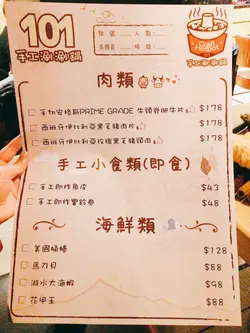 101
手工涮涮鍋
檯號：
人數：
服務員：
時間：
手工涮涮鍋
肉類
手切安格斯PRIME GRADE 牛頸脊肥牛片 $178
西班牙伊比利亞黑毛豬肉片 $178
西班牙伊比利亞玫瑰黑毛豬頸肉 $178
手工小食類(即食)
手工即炸魚皮 $43
手工即炸響鈴卷 $48
海鮮類
美國桶蠔 $128
馬刀貝 $88
游水大海蝦 $98
花甲王 $88